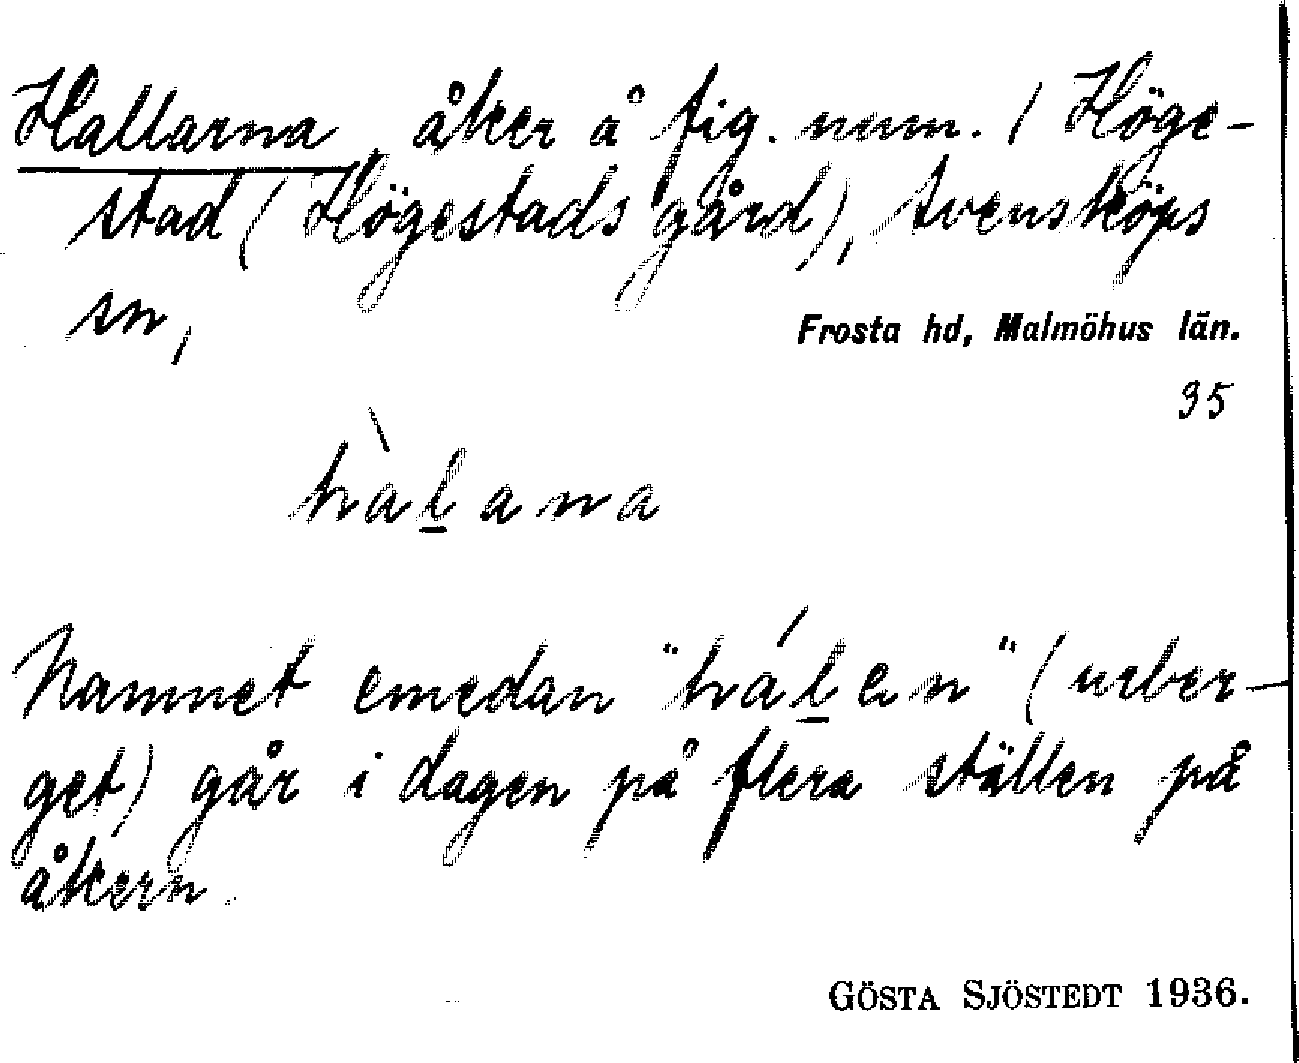 Hallarna, åker å fig. num. 1 Höge-
stad (Högestads gård), Svensköps
sn,
Frosta hd, Malmöhus län.
35
hàl̲ana
Namnet emedan "hál̲en" (urber-
get) går i dagen på flera ställen på
åkern.
GÖSTA SJÖSTEDT 1936.